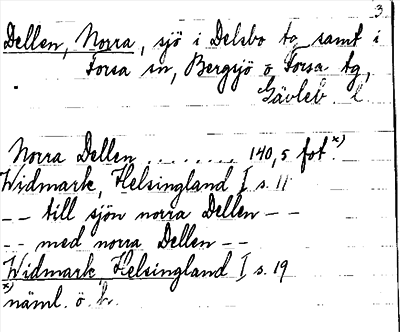 3
Dellen, Norra, sjö i Delsbo tg samt i
Forsa sn, Bergsjö o Forsa tg,
Gävleb. l.
Norra Dellen . . . . . . . . 140,5 fot. x)
Widmark, Helsingland I s. 11
– – till sjön norra Dellen – –
– – med norra Dellen – –
Widmark, Helsingland I s. 19
x) näml. ö. h.